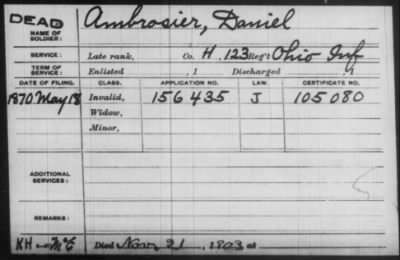 DEAD Ambrosier, Daniel
NAME OF SOLDIER:
SERVICE: Late rank, Co. H. 123 Reg't Ohio Inf
TERM OF SERVICE: Enlisted , 1 Discharged , 1
DATE OF FILING. CLASS. APPLICATION NO. LAW. CERTIFICATE NO.
1870 May 18 Invalid, 156 435 J 105 080
Widow,
Minor,
ADDITIONAL SERVICES:
REMARKS:
Died Nov. 21, 1903 at